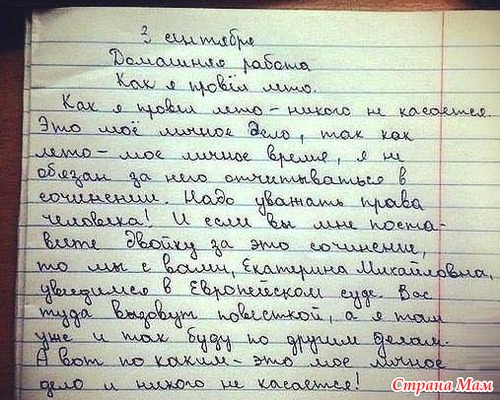 3 сентября
Домашняя работа
Как я провёл лето.
Как я провел лето - никого не касается.
Это моё личное дело, так как
лето - мое личное время, я не
обязан за него отчитываться в
сочинении. Надо уважать права
человека! И если вы мне поста-
вите двойку за это сочинение,
то мы с вами, Екатерина Михайловна,
увидимся в Европейском суде. Вас
туда вызовут повесткой, а я там
уже и так буду по другим делам.
А вот по каким - это мое личное
дело и никого не касается!
Страна Мам